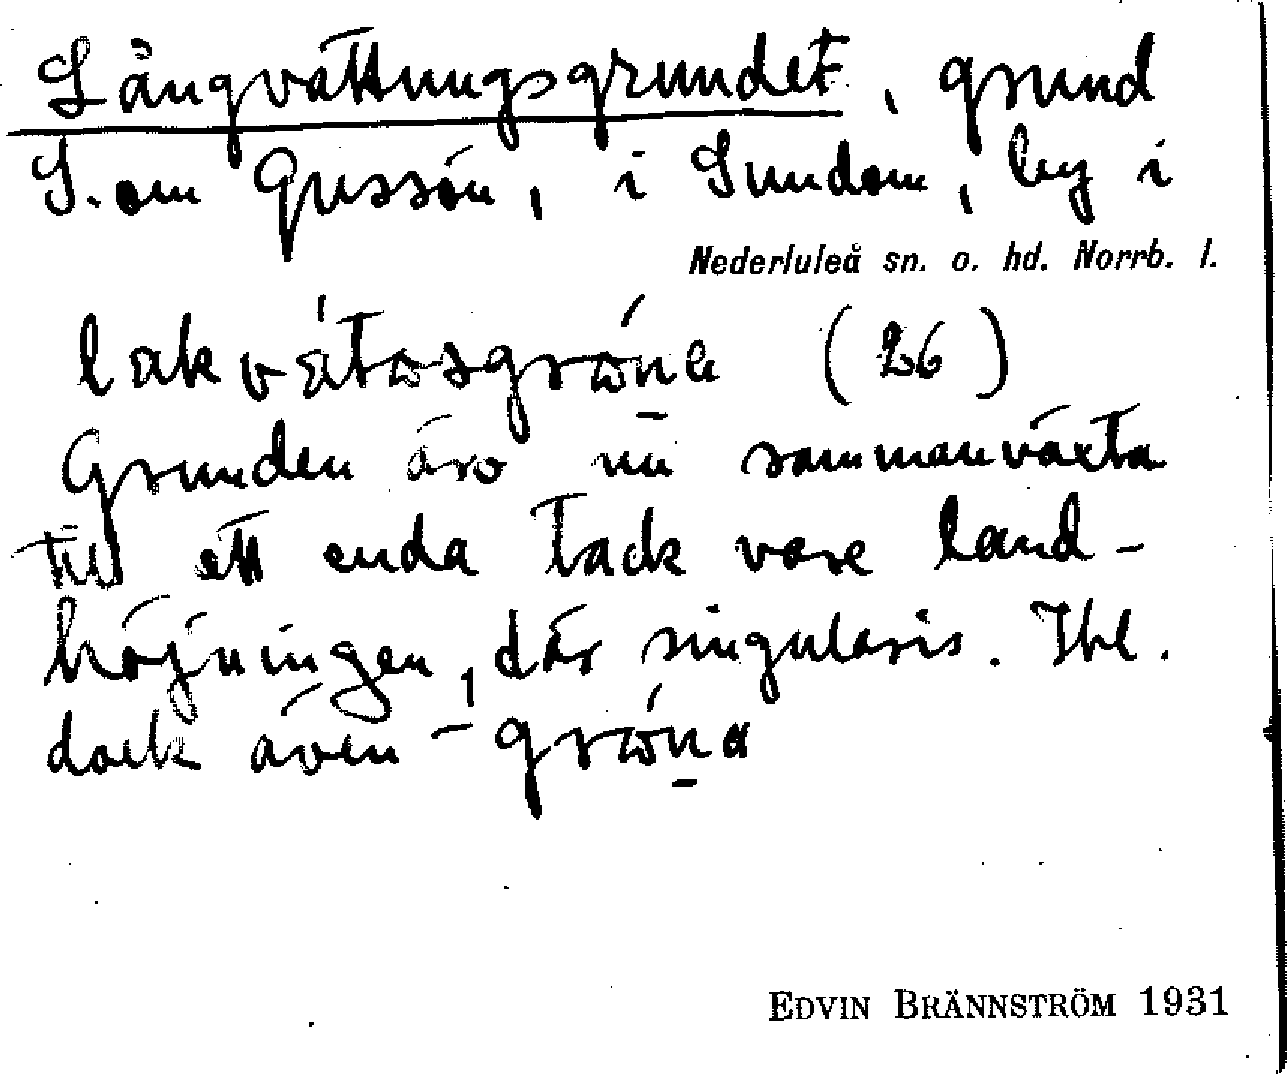 Långvattungsgrundet, grund
S. om Gussön, i Sundom, by i
Nederluleå sn. o. hd. Norrb. l.
(26)
Grunden äro nu sammanväxta
till ett enda tack vare land-
höjningen, där singularis. Ibl.
dock även -
EDVIN BRÄNNSTRÖM 1931